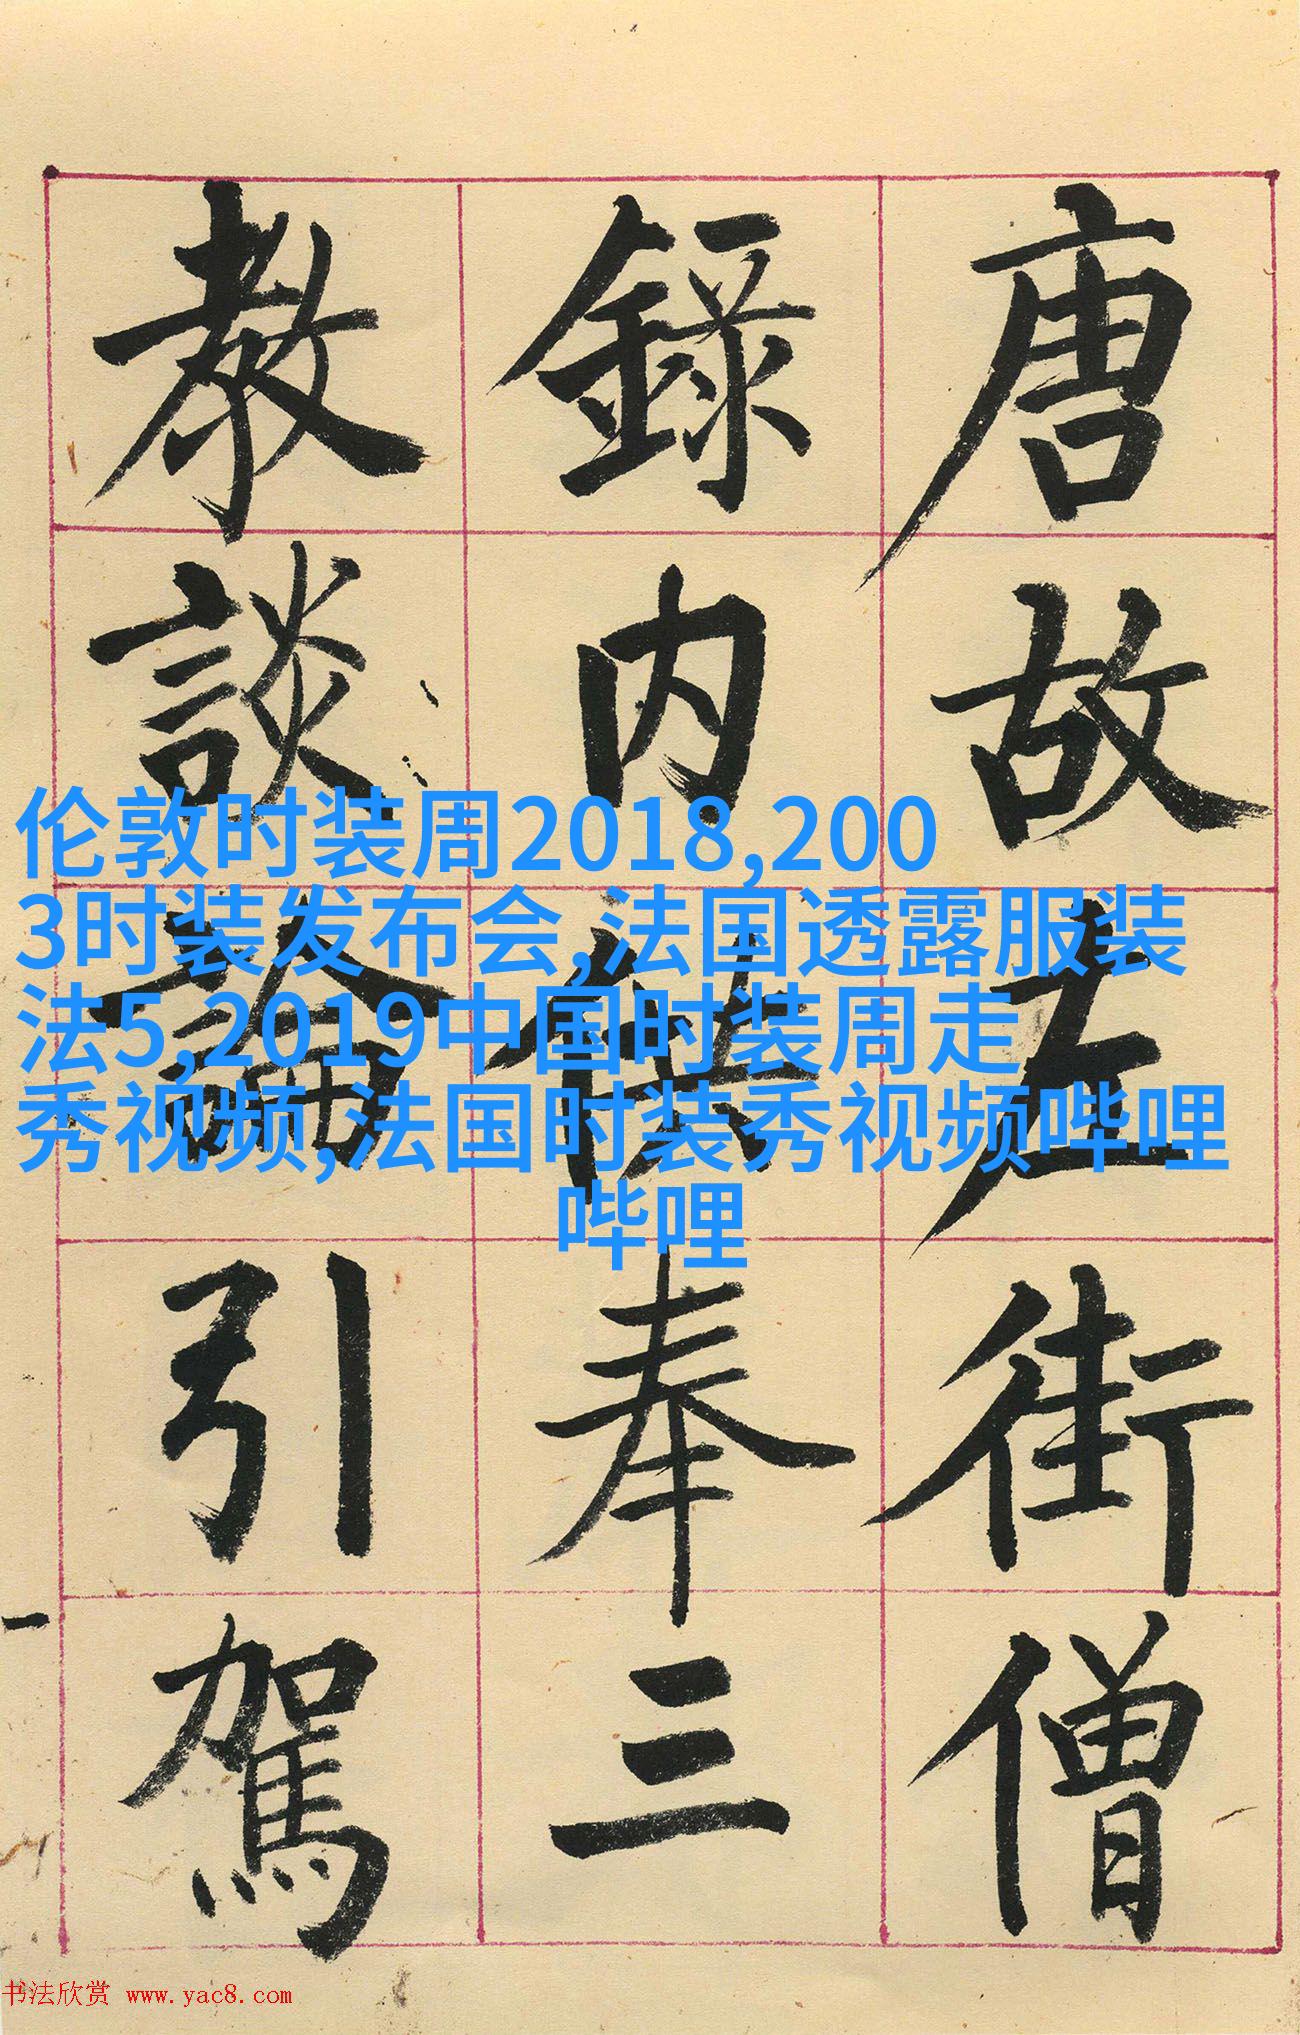 唐故左街僧
録内供奉三
教談論引駕
伦敦时装周2018,200
3时装发布会,法国透露服装
法5,2019中国时装周走
秀视频,法国时装秀视频哔哩
哔哩
书法欣赏 www.yac8.com